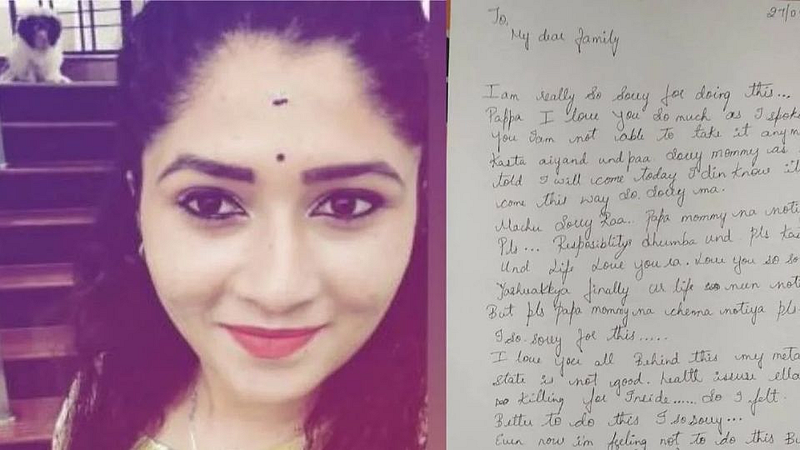 27/0
To,
My dear family
I am really so sorry for doing this...
Pappa I love you so much as I spoke
you Iam not able to take it anym
Kasta aiyand und paa sorry mommy as
told I will come today I din know it
come this way so. Sorry ma.
Machu Sorry Raa.. Papa mommy na noti
Pls... Resposiblitys dhumba und pls
Und life Love you ra. Love you so so
finally life nun not
But pls papa mommy na chenna notiya pls
I so sorry for this.....
I love you all Behind this my meta
state is not good. health issuse ella
killing for Inside..... So I felt.
Better to do this I so sorry...
Even now i'm feeling not to do this Bu